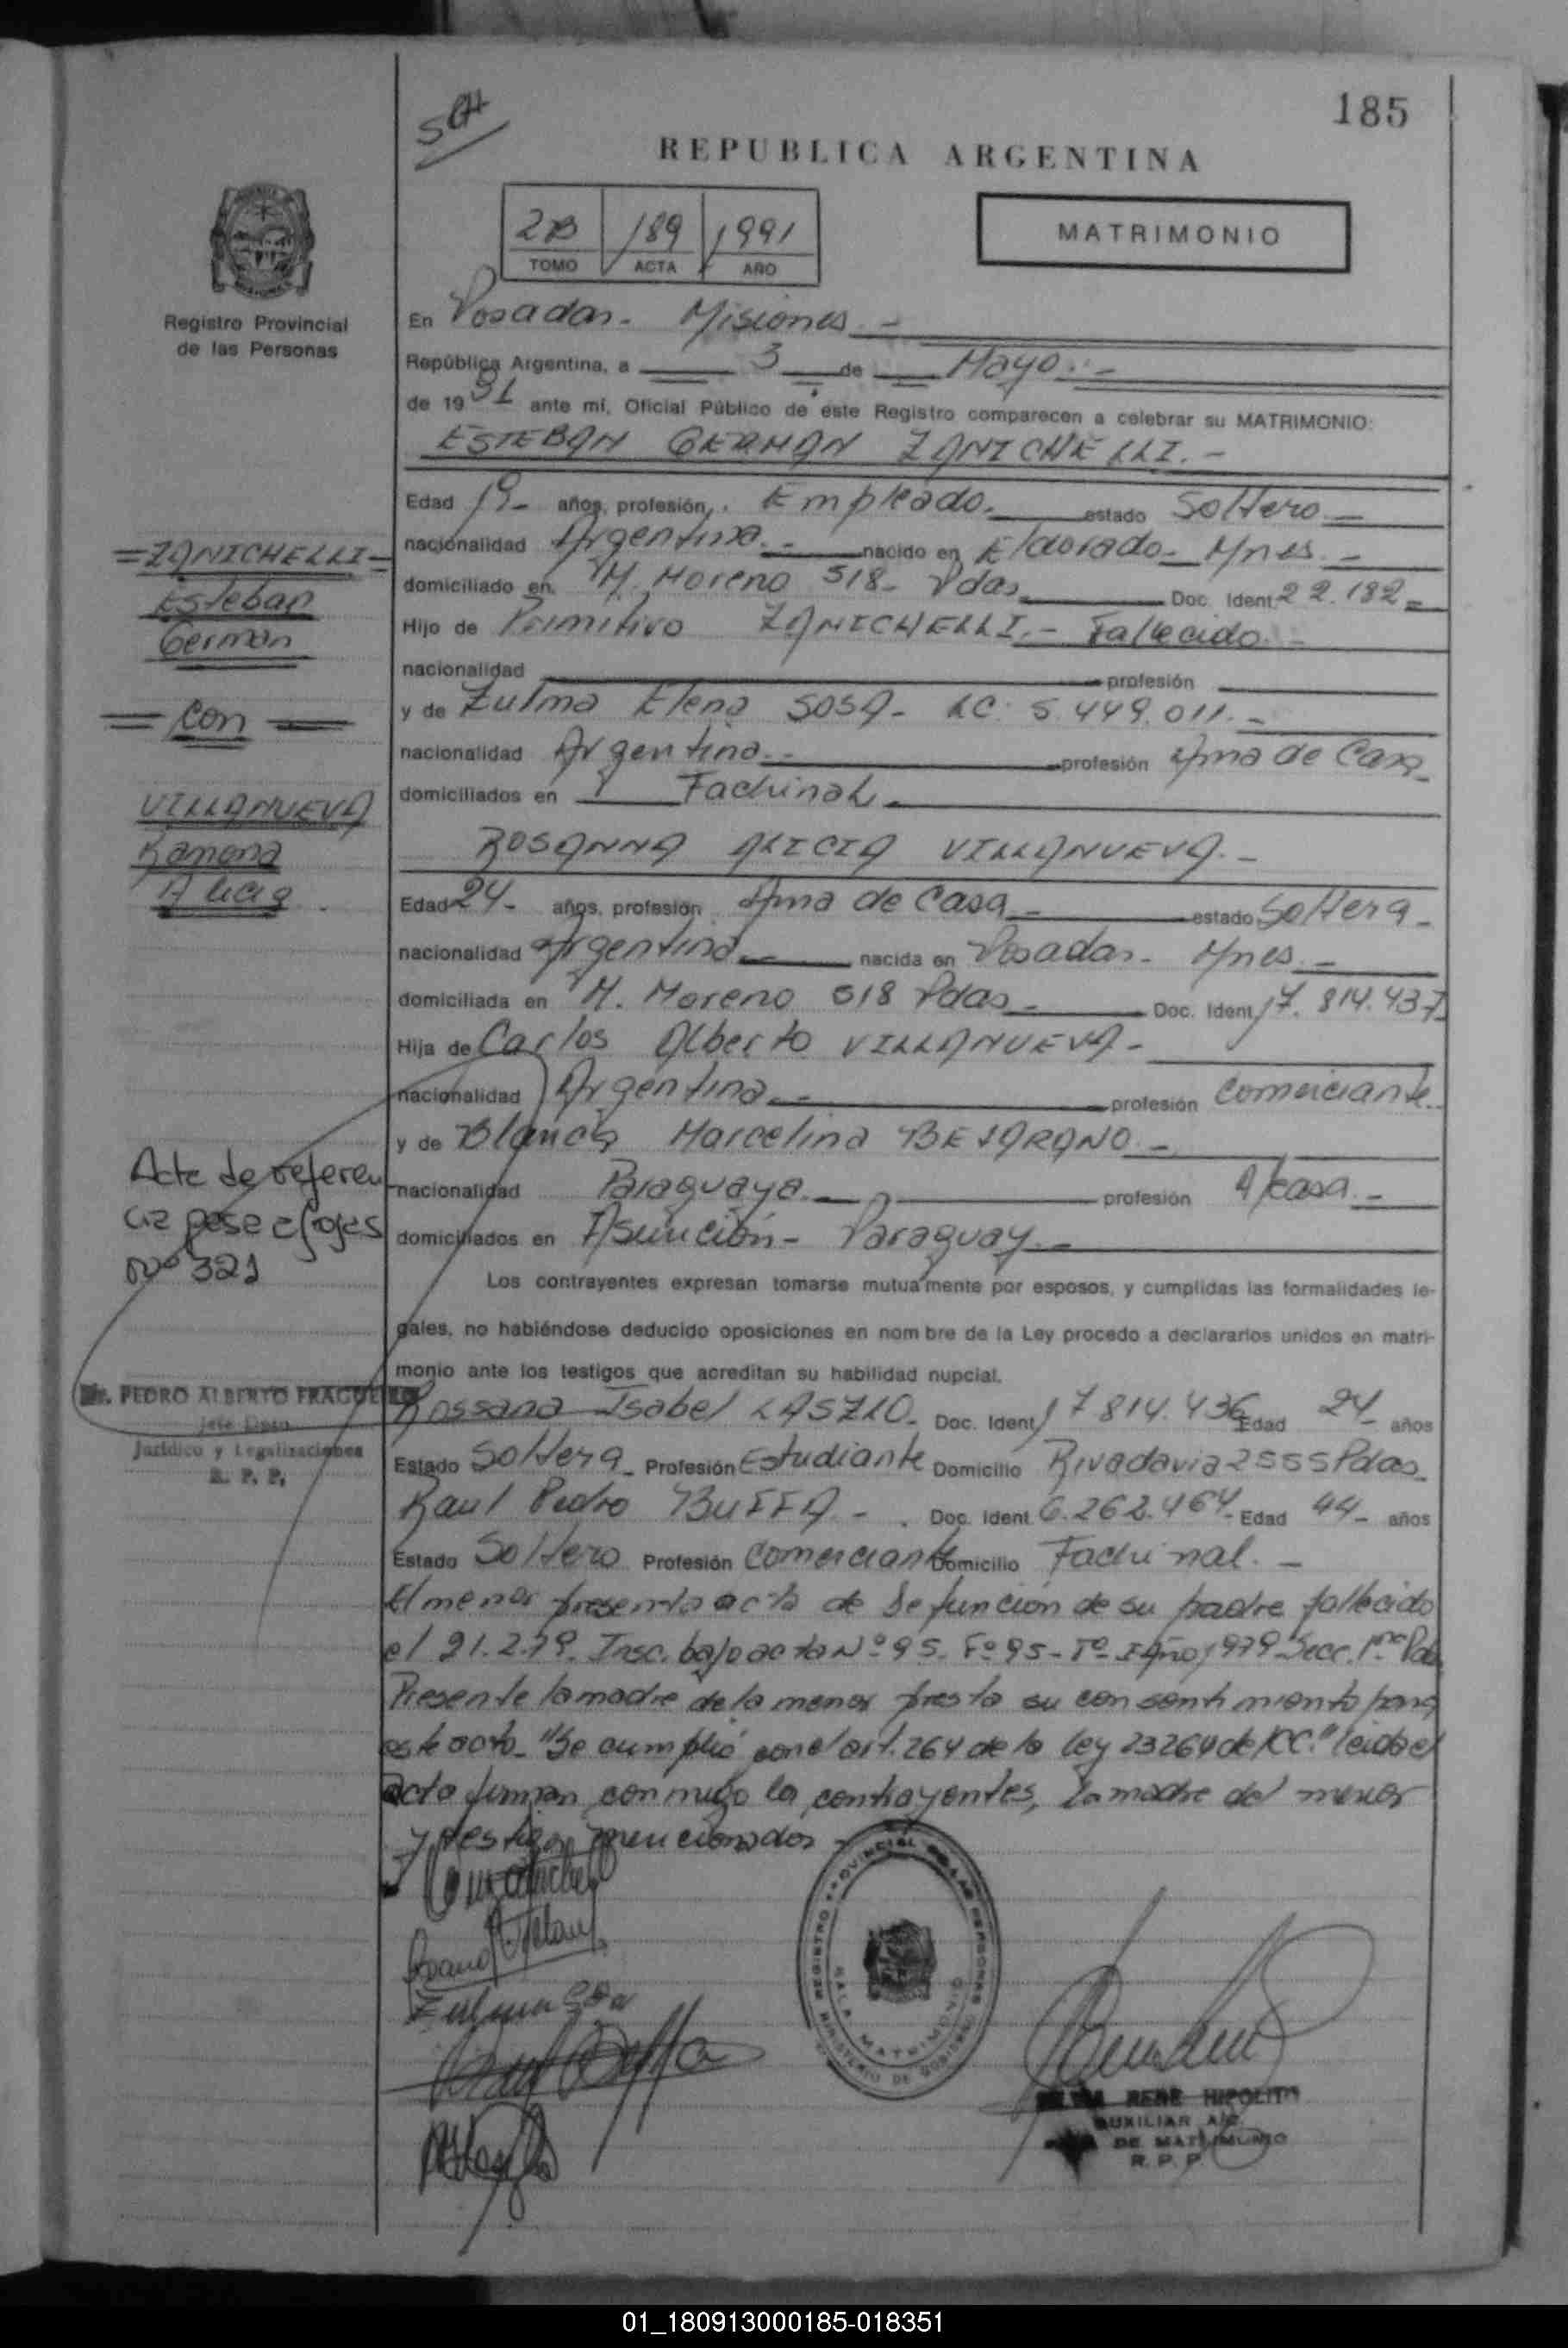 185
REPUBLICA ARGENTINA
2B 189 1991
TOMO ACTA AÑO
MATRIMONIO
Registro Provincial
de las Personas
En Posadas- Misiones.-
República Argentina, a 3 de Mayo.-
de 1991 ante mí, Oficial Público de este Registro comparecen a celebrar su MATRIMONIO:
ESTEBAN GERMAN ZANICHELLI.-
Edad 19- años, profesión, Empleado. estado Soltero.-
nacionalidad Argentina.- nacido en Eldorado- Mnes.-
domiciliado en M. Moreno 518- Pdas. Doc. Ident. 22.182-
Hijo de Primitivo ZANICHELLI.- Fallecido.-
nacionalidad profesión
y de Zulma Elena SOSA- LC: 5.449.011.-
nacionalidad Argentina.- profesión Ama de Casa-
domiciliados en Fachinal.
ROSANNA ALICIA VILLANUEVA.-
Edad 24- años, profesión Ama de Casa- estado Soltera-
nacionalidad Argentina nacida en Posadas- Mnes.-
domiciliada en M. Moreno 518 Pdas- Doc. Ident 17.814.437
Hija de Carlos Alberto VILLANUEVA-
nacionalidad Argentina.- profesión Comerciante.
y de Blanca Marcelina BEJARANO.-
nacionalidad Paraguaya.- profesión A/casa.-
domiciliados en Asunción- Paraguay.-
Los contrayentes expresan tomarse mutuamente por esposos, y cumplidas las formalidades le-
gales, no habiéndose deducido oposiciones en nombre de la Ley procedo a declararlos unidos en matri-
monio ante los testigos que acreditan su habilidad nupcial.
Rossana Isabel LASZLO. Doc. Ident 17814.436 Edad 24- años
Estado Soltera- Profesión Estudiante Domicilio Rivadavia 2555 Pdas-
Raul Pedro BUFFA-. Doc. Ident. 6.262.464- Edad 44- años
Estado Soltero Profesión Comerciante Domicilio Fachinal.-
El menor presenta acta de defunción de su padre fallecido
el 21.2.79. Insc. bajo acta Nº 95- Fº 95- Tº I Año 1979- Secc. 1ra
Presente la madre de la menor presta su consentimiento para
este acto- "Se cumplió con el art. 264 de la ley 23264 del CC." leída el
acta firman conmigo los contrayentes, la madre del menor
y testigos mencionados
=ZANICHELLI=
Esteban
German
= con =
VILLANUEVA
Ramona
Alicia
Acta de referen
cia pase a fojas
Nº 321
Dr. PEDRO ALBERTO FRAGUEIRO
Jefe Dpto.
Jurídico y Legalizaciones
R. P. P.
Zulma Sosa
REGISTRO PROVINCIAL DE LAS PERSONAS
SALA MATRIMONIO
MINISTERIO DE GOBIERNO
RENE HIPOLITO
AUXILIAR A/C
DE MATRIMONIO
R. P. P.
01_180913000185-018351